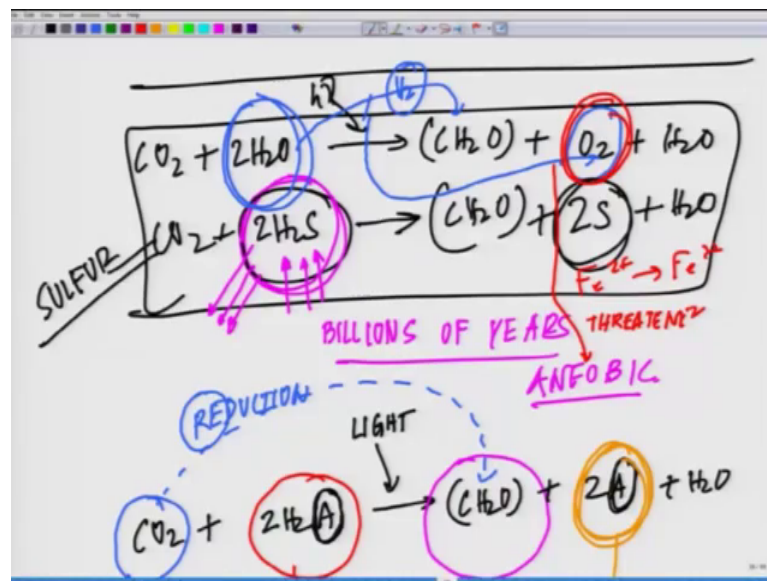 hν H₂
CO₂ + 2H₂O → (CH₂O) + O₂ + H₂O
CO₂ + 2H₂S → (CH₂O) + 2S + H₂O
SULFUR
Fe²⁺ → Fe³⁺
BILLIONS OF YEARS THREATENED
ANEOBIC
REDUCTION
LIGHT
CO₂ + 2H₂A → (CH₂O) + 2A + H₂O